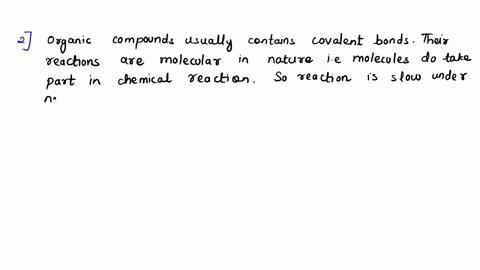 2] Organic compounds usually contains covalent bonds. Their
reactions are molecular in nature i.e molecules do take
part in chemical reaction. So reaction is slow under